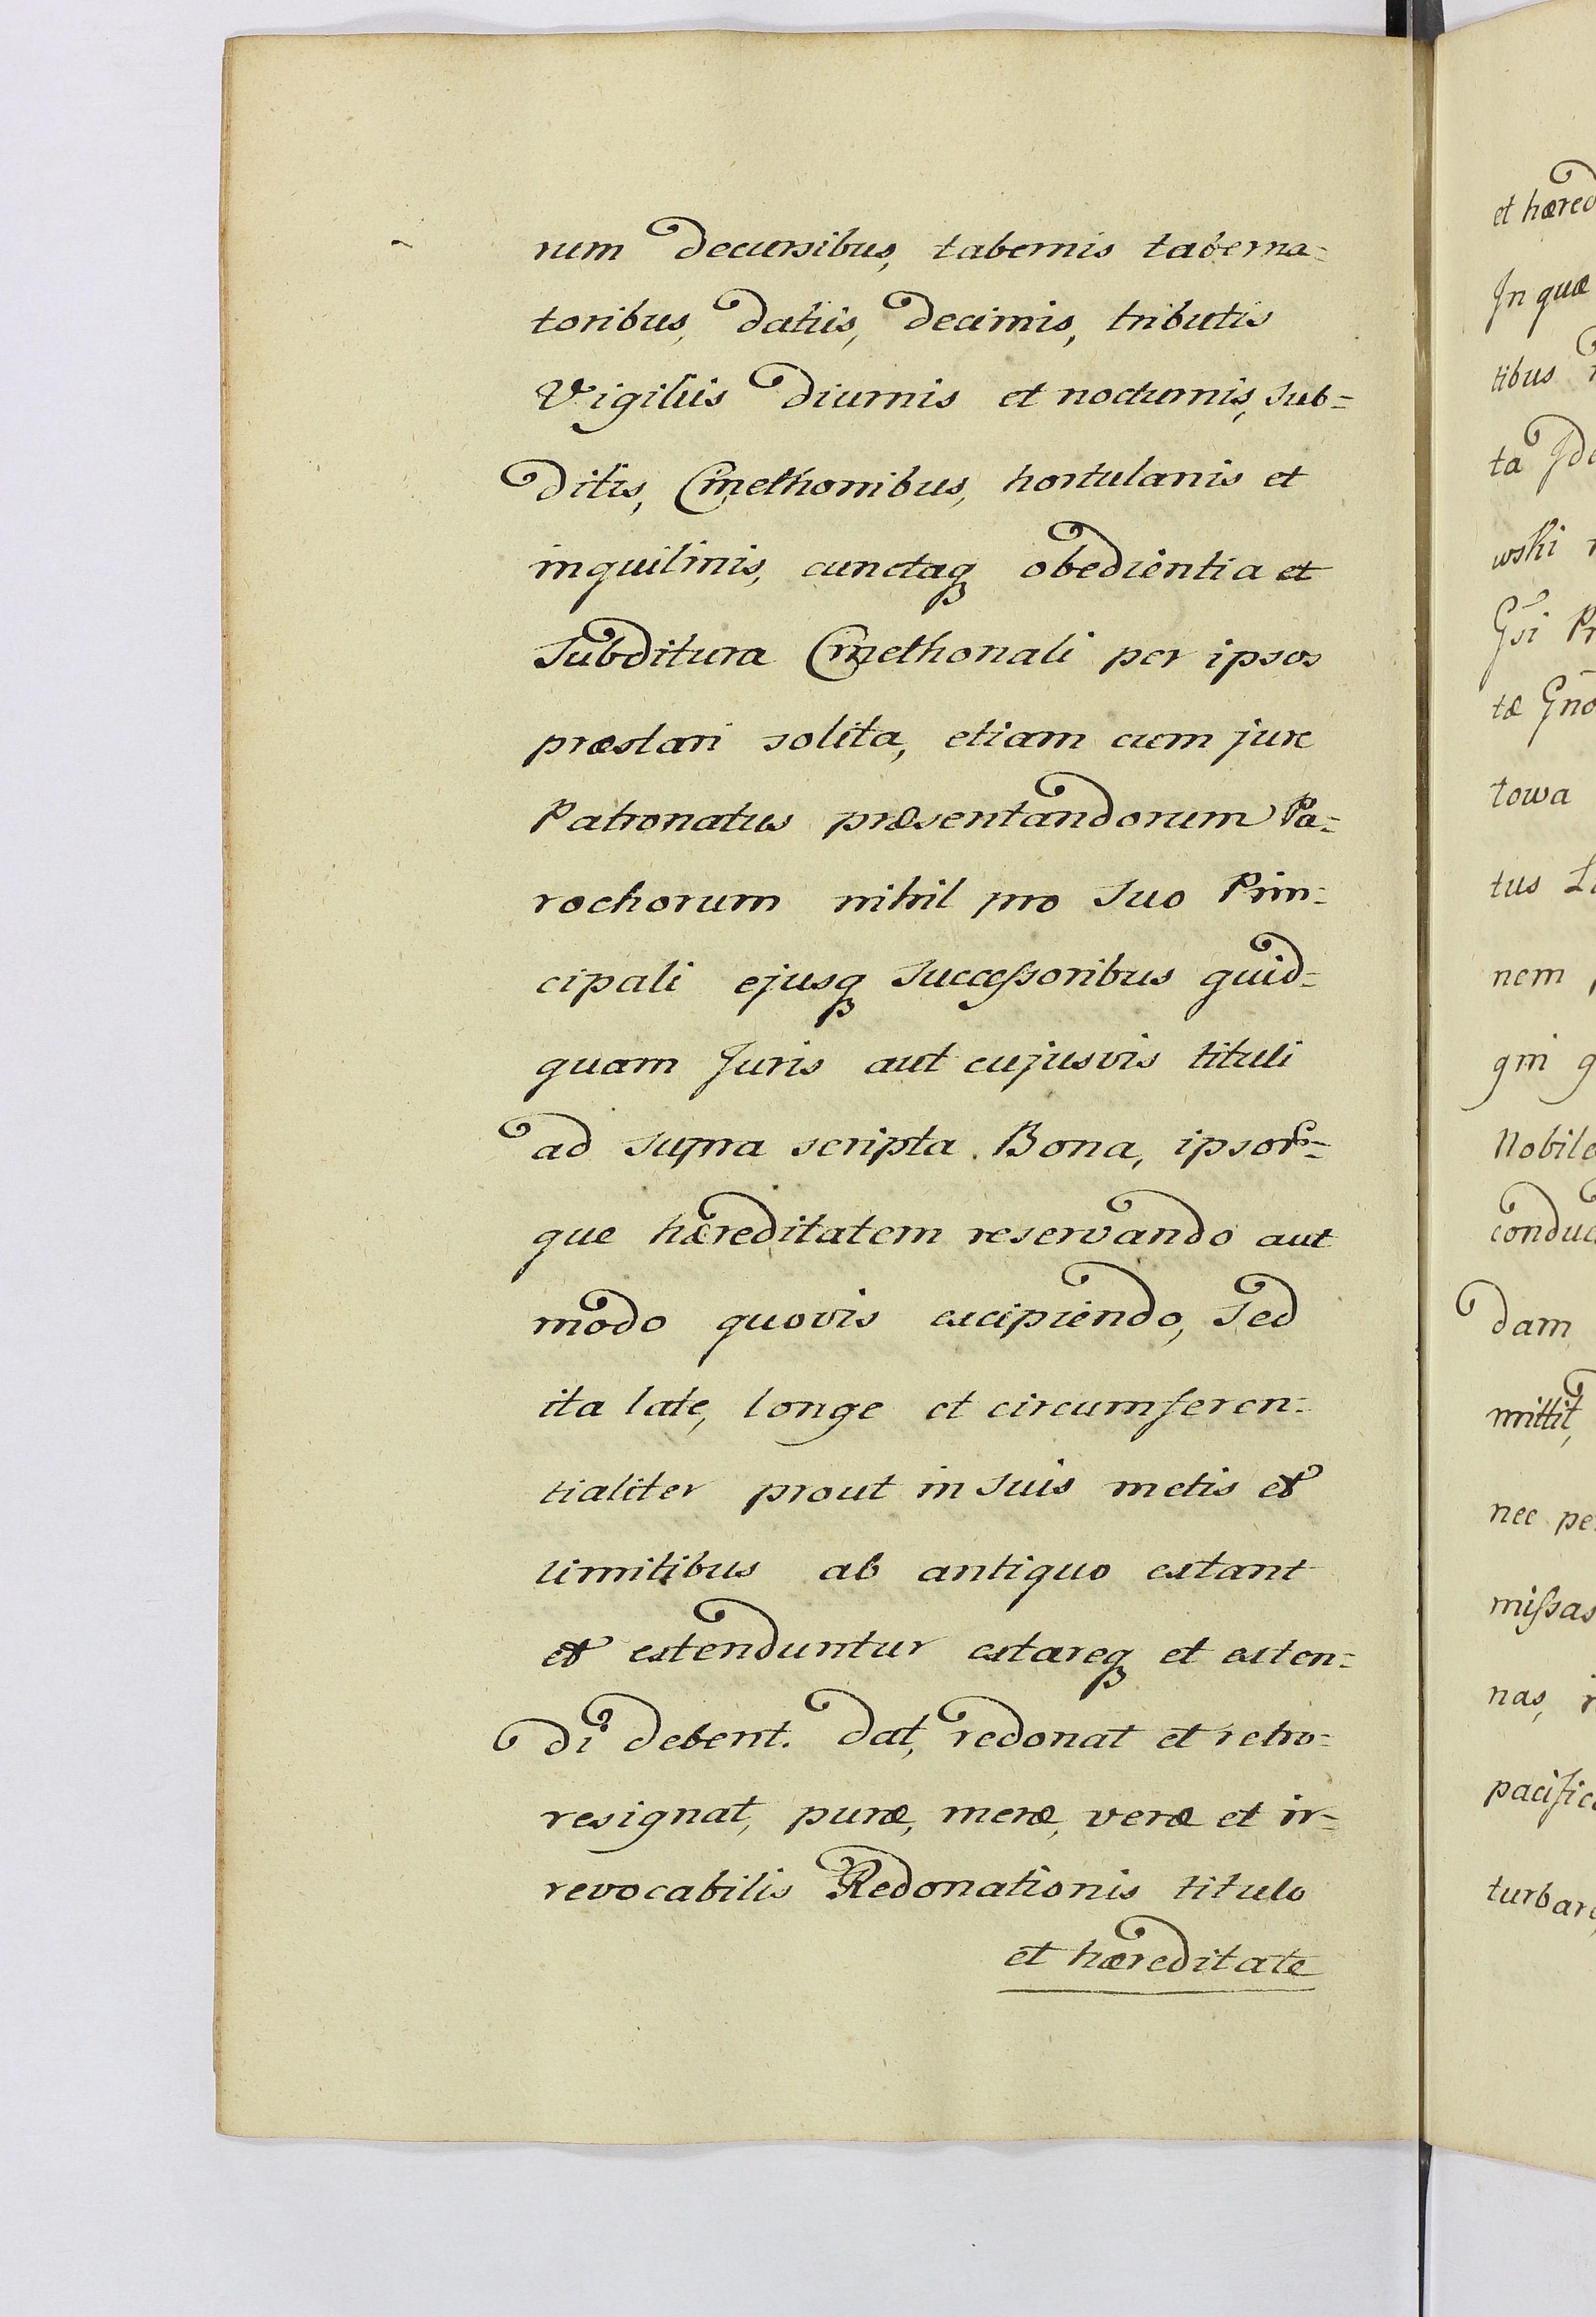 rum decursibus, tabernis taberna=
toribus, datiis, decimis, tributis
Vigiliis diurnis et nocturnis, sub=
ditis, Cmethonibus, hortulanis et
inquilinis, cunctaq obedientia et
Subditura Cmethonali per ipsos
præstari solita, etiam cum jure
Patronatus præsentandorum Pa=
rochorum nihil pro suo Prin=
cipali ejusq Successoribus quid=
quam Juris aut cujusvis tituli
ad supra scripta Bona, ipsor=
que hæreditatem reservando aut
modo quovis excipiendo, Sed
ita late, longe et circumferen=
tialiter prout in suis metis et
limitibus ab antiquo extant
et extenduntur extareq et exten=
di debent. dat, redonat et retro=
resignat, puræ, meræ, veræ et ir=
revocabilis Redonationis titulo
et hæreditate
et hæred
In quæ
tibus
ta
wski
Gsi Pr
tæ Gno
towa
tus
nem
gni
Nobile
conduc
dam
mittit,
nec pe
missas
nas,
pacific
turbar